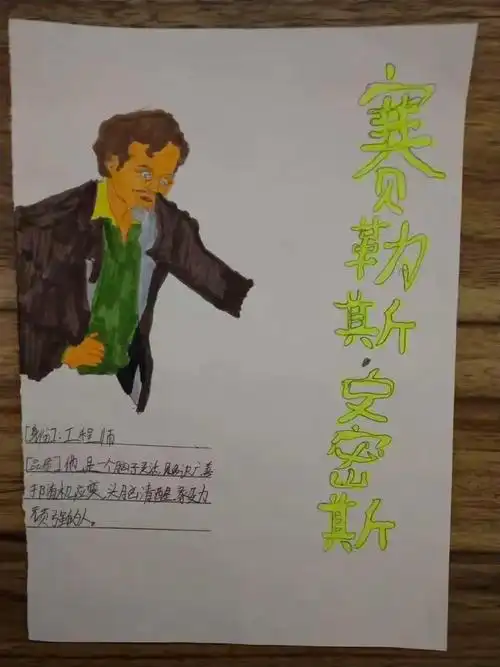 赛勒斯·史密斯
[身份]:工程师
[品质]他是一个脑子灵活,见识广善
于随机应变,头脑清醒,力
顽强的人。